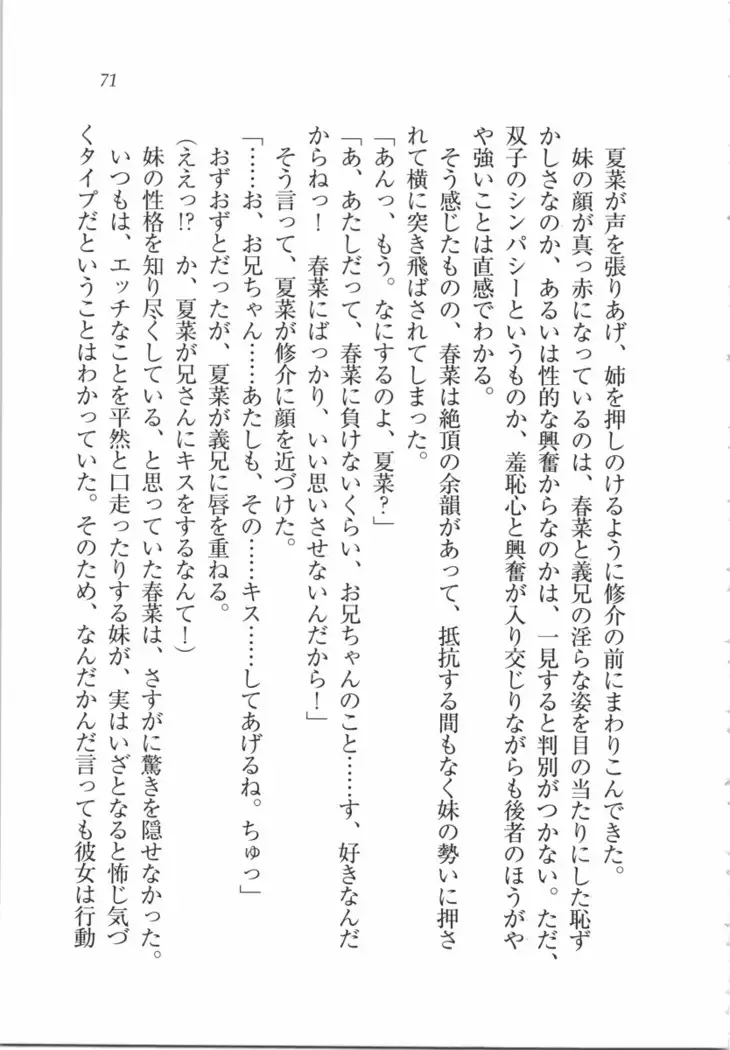 71
夏菜が声を張りあげ、姉を押しのけるように修介の前にまわりこんできた。
妹の顔が真っ赤になっているのは、春菜と義兄の淫らな姿を目の当たりにした恥ず
かしさなのか、あるいは性的な興奮からなのかは、一見すると判別がつかない。ただ、
双子のシンパシーというものか、羞恥心と興奮が入り交じりながらも後者のほうがや
や強いことは直感でわかる。
そう感じたものの、春菜は絶頂の余韻があって、抵抗する間もなく妹の勢いに押さ
れて横に突き飛ばされてしまった。
「あんっ、もう。なにするのよ、夏菜？」
「あ、あたしだって、春菜に負けないくらい、お兄ちゃんのこと……す、好きなんだ
からねっ！　春菜にばっかり、いい思いさせないんだから！」
そう言って、夏菜が修介に顔を近づけた。
「……お、お兄ちゃん……あたしも、その……キス……してあげるね。ちゅっ」
おずおずとだったが、夏菜が義兄に唇を重ねる。
（ええっ!?　か、夏菜が兄さんにキスをするなんて！）
妹の性格を知り尽くしている、と思っていた春菜は、さすがに驚きを隠せなかった。
いつもは、エッチなことを平然と口走ったりする妹が、実はいざとなると怖じ気づ
くタイプだということはわかっていた。そのため、なんだかんだ言っても彼女は行動